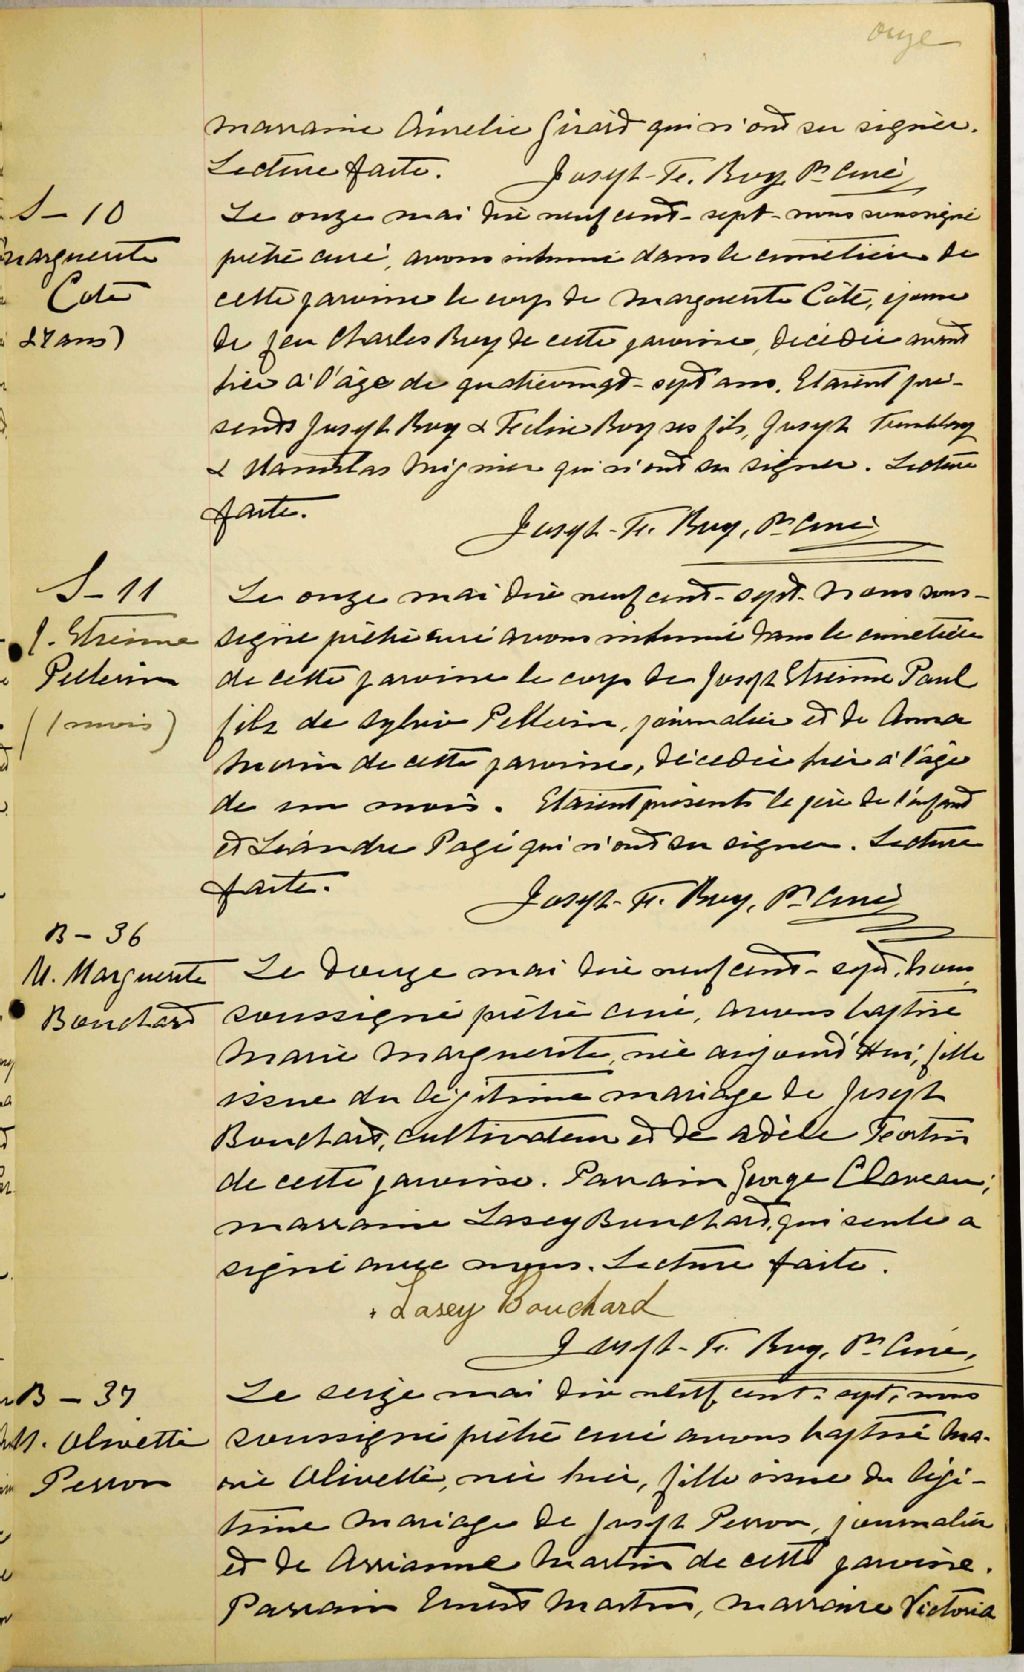 onze
marraine Aurélie Girard qui n'ont su signer.
Lecture faite. Joseph-Fr. Roy, Ptre Curé
S-10
Marguerite
Coté
87 ans)
Le onze mai dix neuf cent-sept-nous soussigné
prêtre curé, avons inhumé dans le cimetière de
cette paroisse le corps de Marguerite Côté, épouse
de feu Charles Roy de cette paroisse, décédée avant
hier à l'âge de quatrevingt-sept ans. Etaient pré-
sents Joseph Roy & Félix Roy ses fils, Joseph Tremblay
& Stanislas Mignier qui n'ont su signer. Lecture
faite.
Joseph-Fr. Roy, Ptre Curé
S-11
J. Etienne
Pellerin
(1 mois)
Le onze mai dix neuf cent-sept-nous sous-
signé prêtre curé avons inhumé dans le cimetière
de cette paroisse le corps de Joseph Etienne Paul
fils de Sylvio Pellerin, journalier et de Anna
Morin de cette paroisse, décédé hier à l'âge
de un mois. Etaient présents le père de l'enfant
et Léandre Pagé qui n'ont su signer. Lecture
faite.
Joseph-Fr. Roy, Ptre Curé
B-36
M. Marguerite
Bouchard
Le douze mai dix neuf cent-sept, nous
soussigné prêtre curé, avons baptisé
Marie Marguerite, née aujourd'hui, fille
issue du légitime mariage de Joseph
Bouchard, cultivateur et de Adèle Fortin
de cette paroisse. Parrain George Claveau,
marraine Lasey Bouchard, qui seule a
signé avec nous. Lecture faite.
Lasey Bouchard
Joseph-Fr. Roy, Ptre Curé,
B-37
M. Olivette
Perron
Le seize mai dix neuf cent-sept, nous
soussigné prêtre curé avons baptisé Ma-
rie Olivette, née hier, fille issue du légi-
time mariage de Joseph Perron, journalier
et de Arrianne Martin de cette paroisse.
Parrain Ernest Martin, marraine Victoria